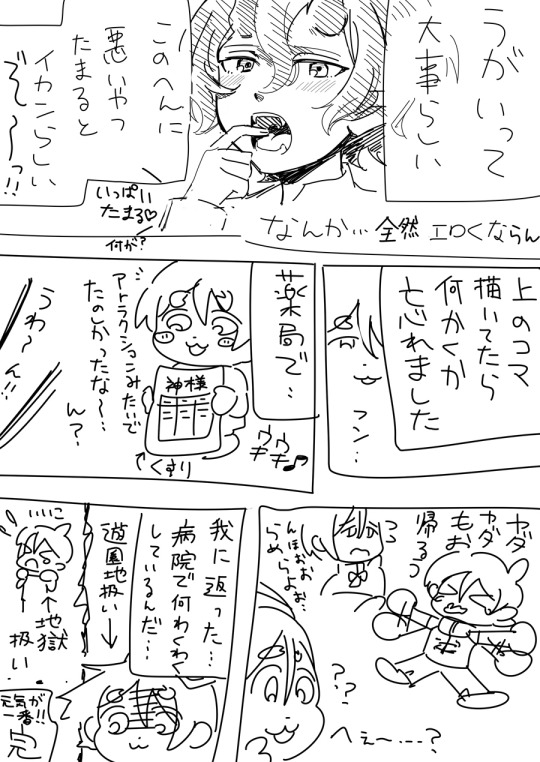 うがいって
大事らしい
このへんに
悪いやつ
たまると
イカンらしい
ぞ〜〜っ!!
いっぱい
たまる♡
何が?
なんか… 全然 エロくならん
上のコマ
描いてたら
何かくか
忘れました
フン…
薬局で…
ウキ
ウキ♪
神様
↑くすり
アトラクションみたいで
たのしかったな〜…
ん?
うわ〜ん!!
ヤダ
ヤダ
もお
帰るぅ
んほぉぉぉ
らめらよぉ…
??
へぇ〜……?
我に返った…
病院で何わくわく
しているんだ…
遊園地扱い→
いいこ
←地獄
扱い
元気が
一番!!
完